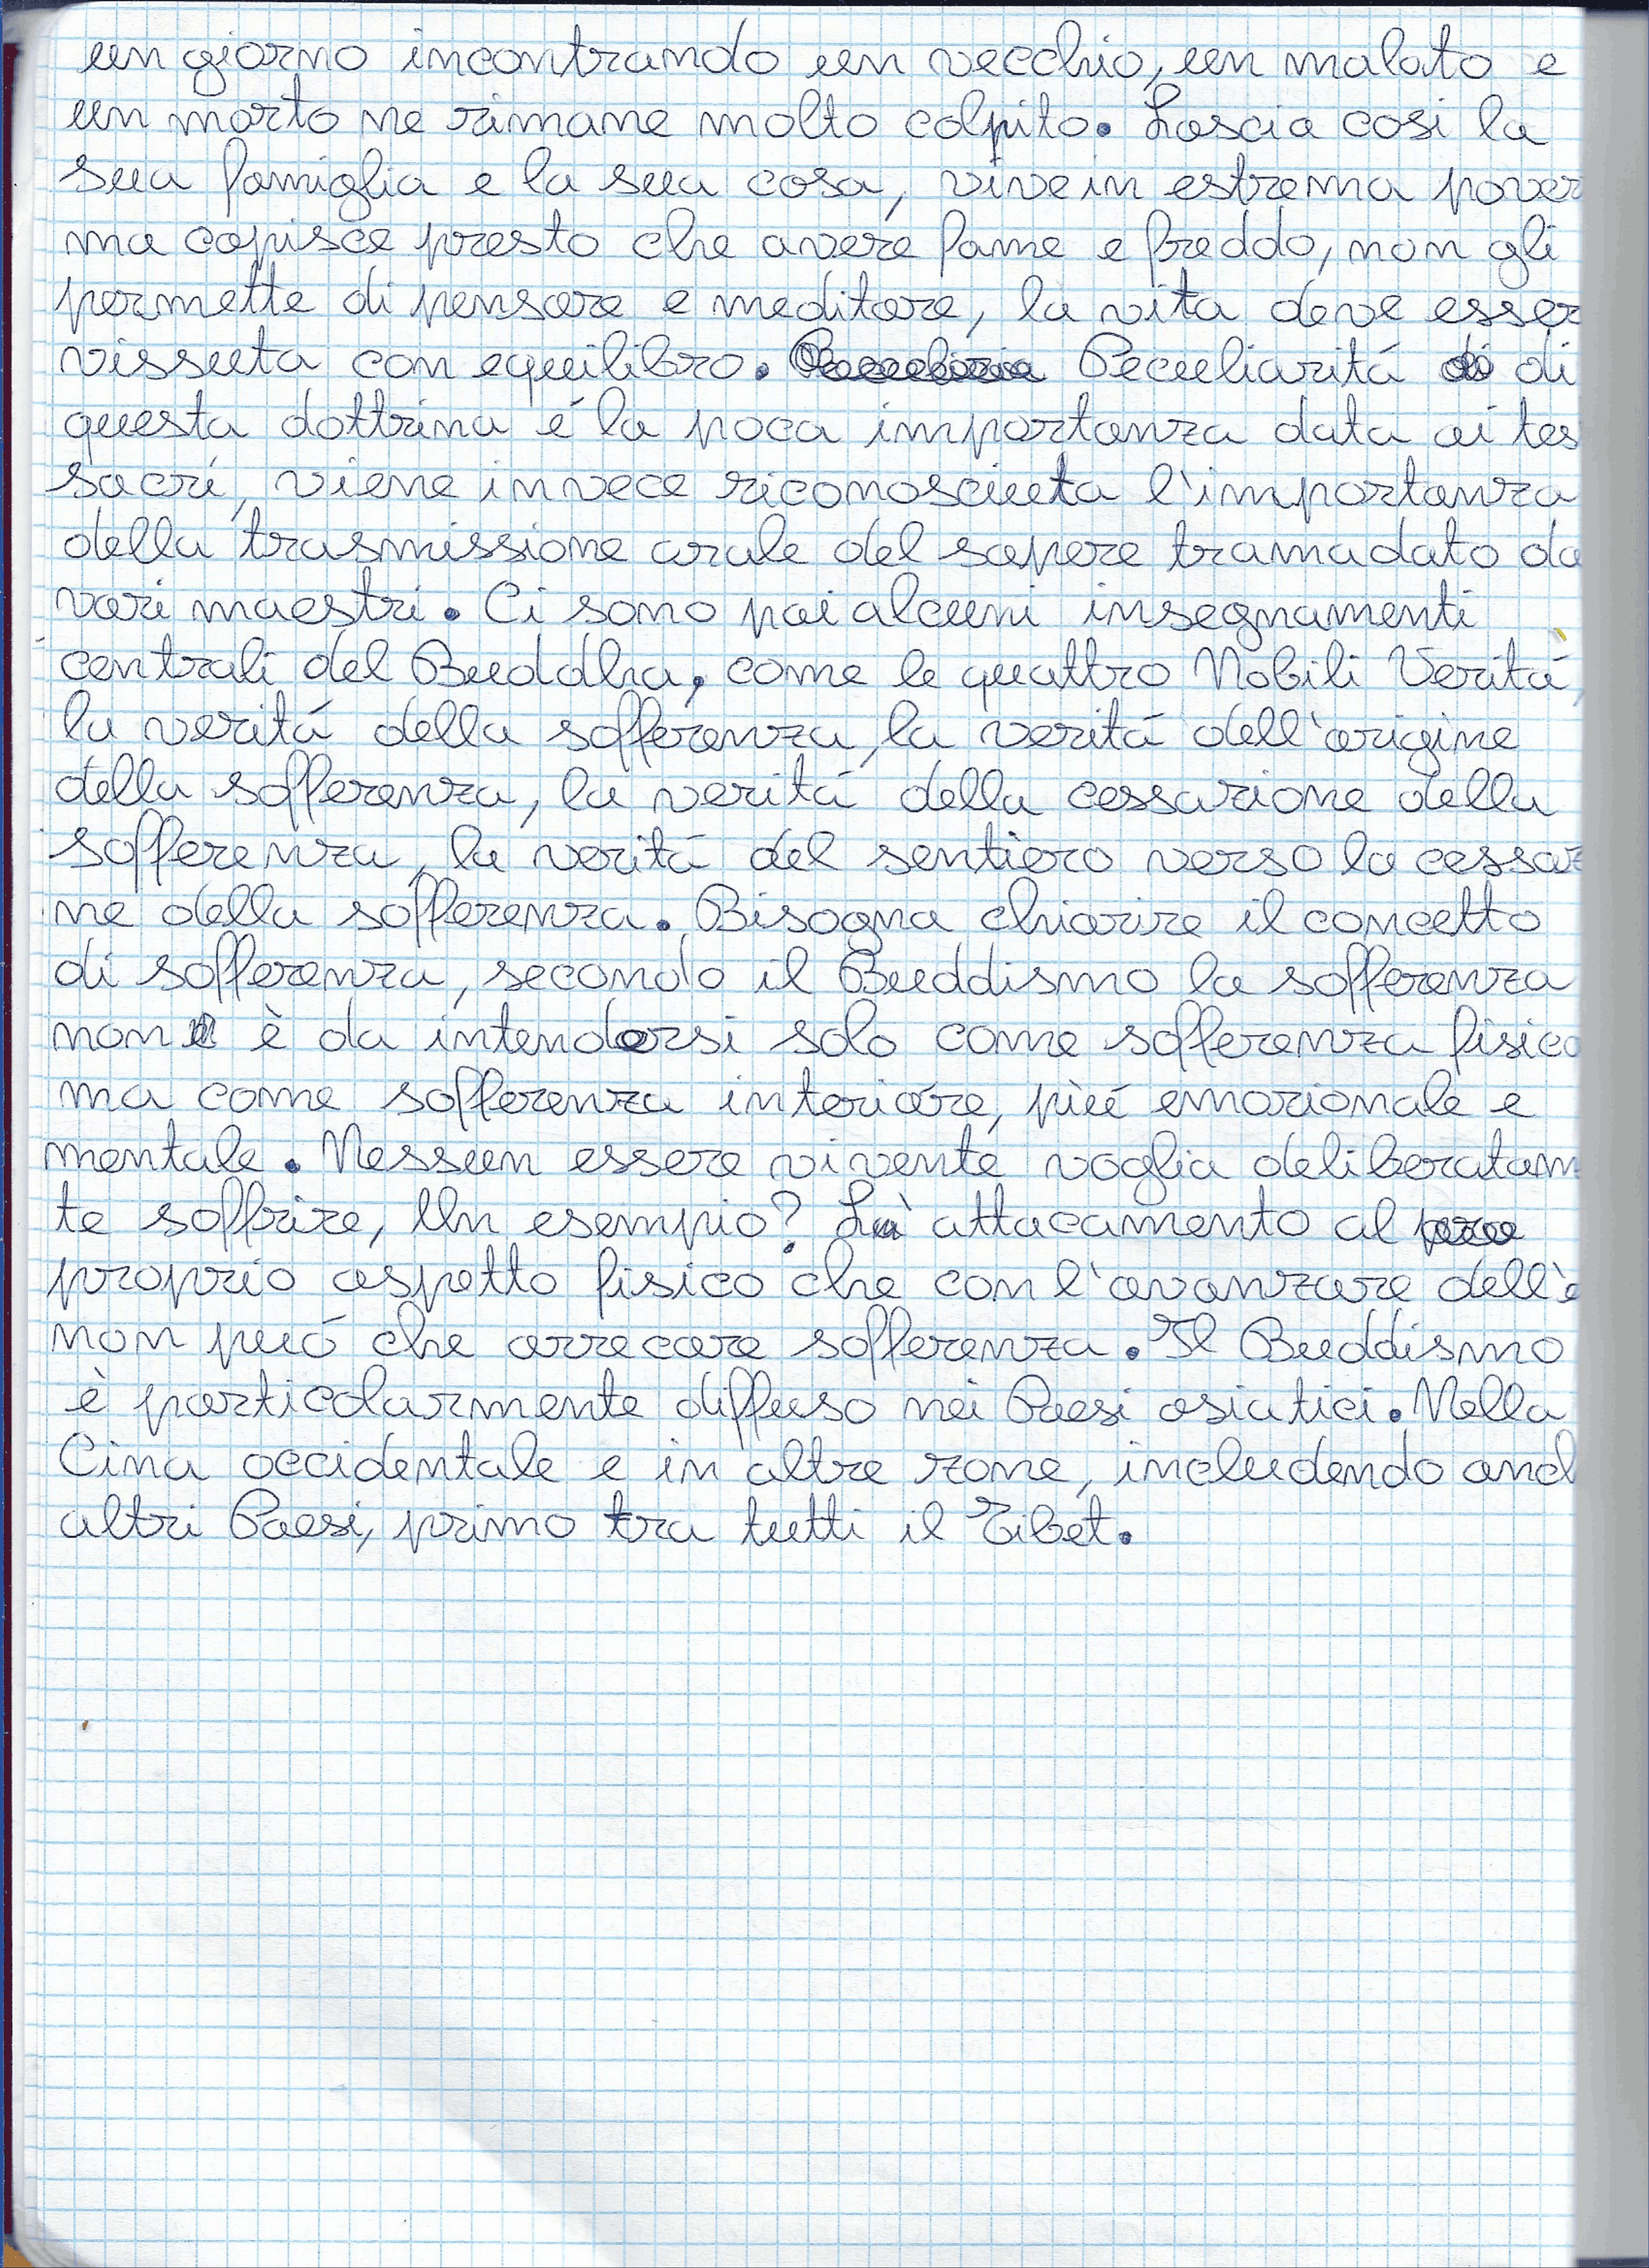 un giorno incontrando un vecchio, un malato e
un morto ne rimane molto colpito. Lascia cosi la
sua famiglia e la sua casa, vive in estrema pover
ma capisce presto che avere fame e freddo, non gli
permette di pensare e meditare, la vita deve esser
vissuta con equilibro. Peculiaritá di
questa dottrina é la poca importanza data ai tes
sacri, viene invece riconosciuta l'importanza
della trasmissione orale del sapere tramadato da
vari maestri. Ci sono poi alcuni insegnamenti
centrali del Buddha, come le quattro Nobili Veritá,
la veritá della sofferenza, la veritá dell'origine
della sofferenza, la veritá della cessazione della
sofferenza, la veritá del sentiero verso la cessaz
ne della sofferenza. Bisogna chiarire il concetto
di sofferenza, secondo il Buddismo la sofferenza
non è da intendersi solo come sofferenza fisica
ma come sofferenza interiore, piú emozionale e
mentale. Nessun essere vivente voglia deliberatam
te soffrire, Un esempio? L'attaccamento al
proprio aspetto fisico che con l'avanzare dell'e
non puó che arrecare sofferenza. Il Buddismo
è particolarmente diffuso nei Paesi asiatici. Nella
Cina occidentale e in altre zone, includendo anch
altri Paesi, primo tra tutti il Tibet.